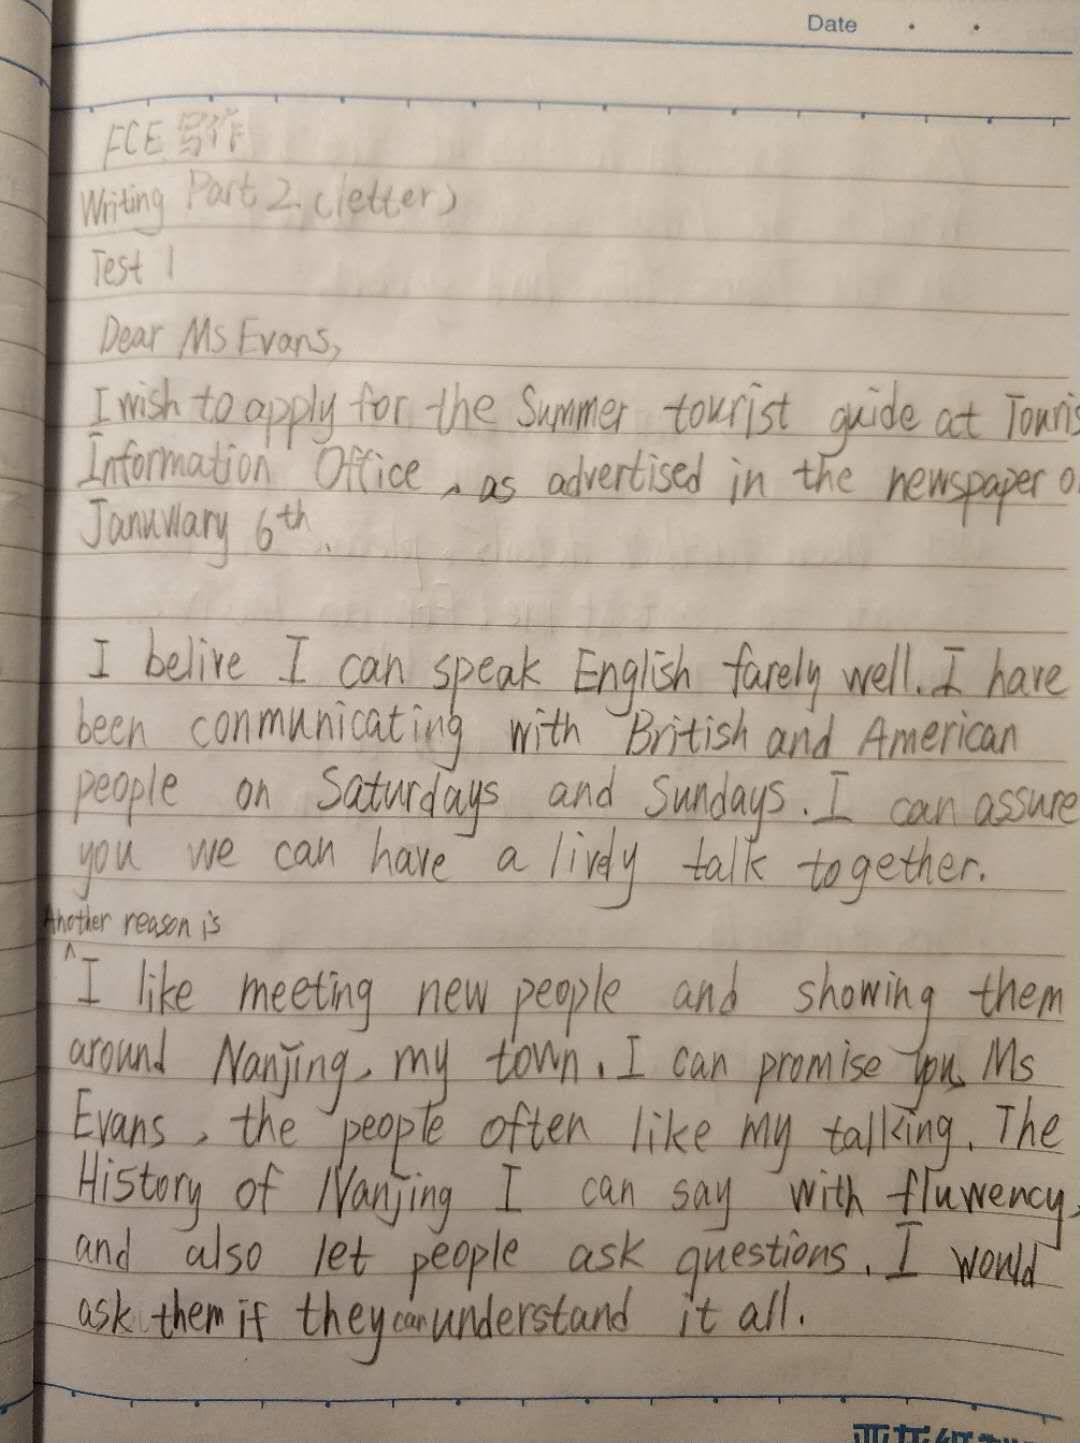 Date
FCE 写作
Writing Part 2 (letter)
Test 1
Dear Ms Evans,
I wish to apply for the Summer tourist guide at Touris
Information Office, as advertised in the newspaper o
Januwary 6th.
I belive I can speak English farely well. I have
been conmunicating with British and American
people on Saturdays and Sundays. I can assure
you we can have a lively talk together.
Another reason is
^
I like meeting new people and showing them
around Nanjing, my town. I can promise you, Ms
Evans, the people often like my talking. The
History of Nanjing I can say with fluwency,
and also let people ask questions. I would
ask them if they can understand it all.